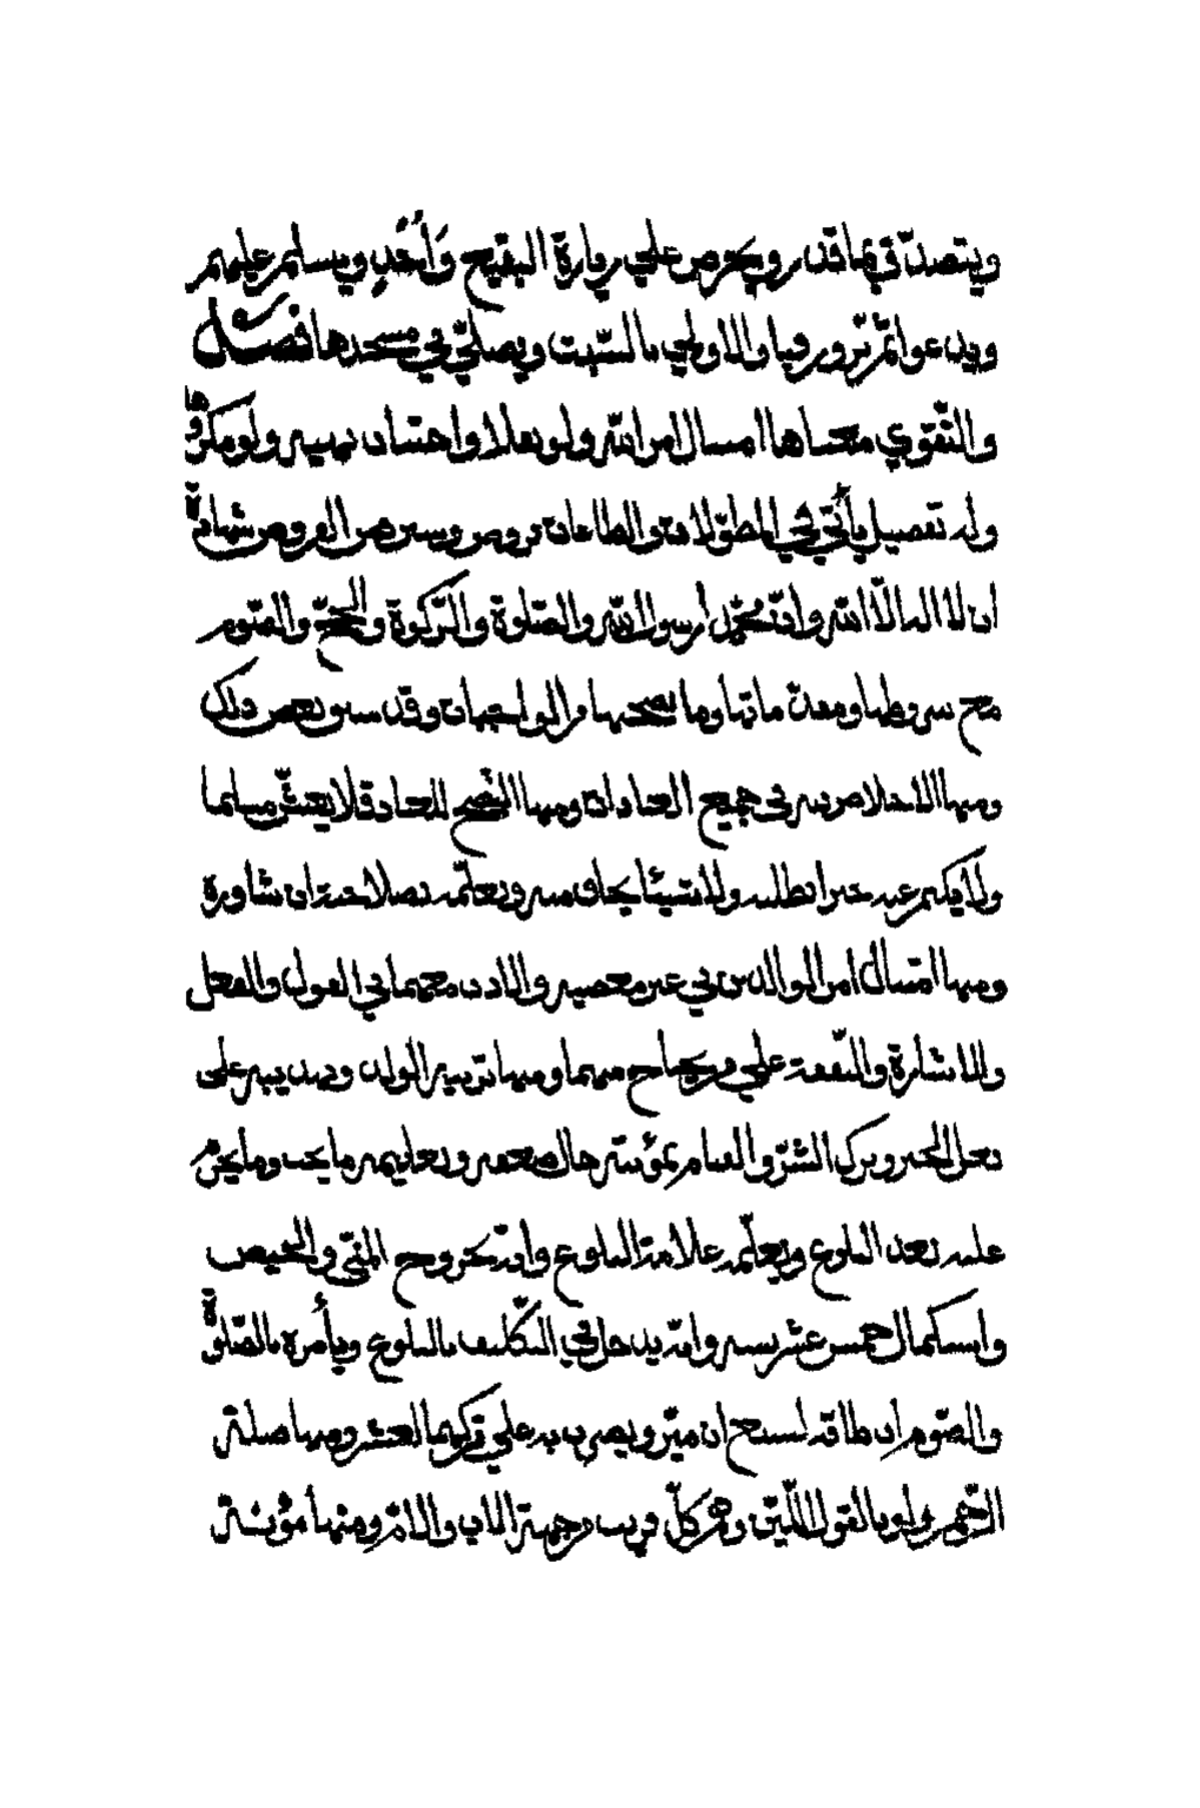 ويتصدّق بما قدر ويحرص على زيارة البقيع وَأُحُدٍ ويسلم عليهم
ويدعو ثمّ يزور قبا والاولى بالسّبت ويصلّي في مسجدها فصل
والتّقوى معناها امتثال امر الله ولو نفلا واجتناب نهيه ولو مكروها
وله تفصيل يأتي في المطوّلات والطاعات فروض وسنن فمن الفروض شهادة
ان لا اله الّا الله وانّ محمّدا رسول الله والصّلوة والزّكوة والحجّ والصّوم
مع شروطها ومعرفة ما لها وما يصححها من الواجبات وقد سبق بعض ذلك
ومنها الاخلاص لله في جميع العبادات ومنها النّصح للعباد فلا يغشّ مسلما
ولا يكتم عنه خيرا يطلبه ولا شيئا يخاف منه ويعلّمه بصلاحه ان شاوره
ومنها امتثال امر الوالدين في غير معصية والادب معهما في القول والفعل
والاشارة والنّفقة على من يحتاج منهما ومنها تربية الولد وتدريبه على
فعل الخير وترك الشرّ والقيام بمؤنته حال صغره وتعليمه ما يجب وما يحرم
عليه بعد البلوغ ويعلّمه علامة البلوغ وانّه بخروج المنيّ والحيض
واستكمال خمس عشر سنة وانّه يدخل في التكليف بالبلوغ ويأمره بالصّلوة
والصّوم ان طاقه لسبع ان ميّز ويضرب به على تركهما لعشر ومنها صلة
الرّحم ولو بالقول اللّيّن وهم كلّ قريب من جهة الاب والامّ ومنها مؤنة